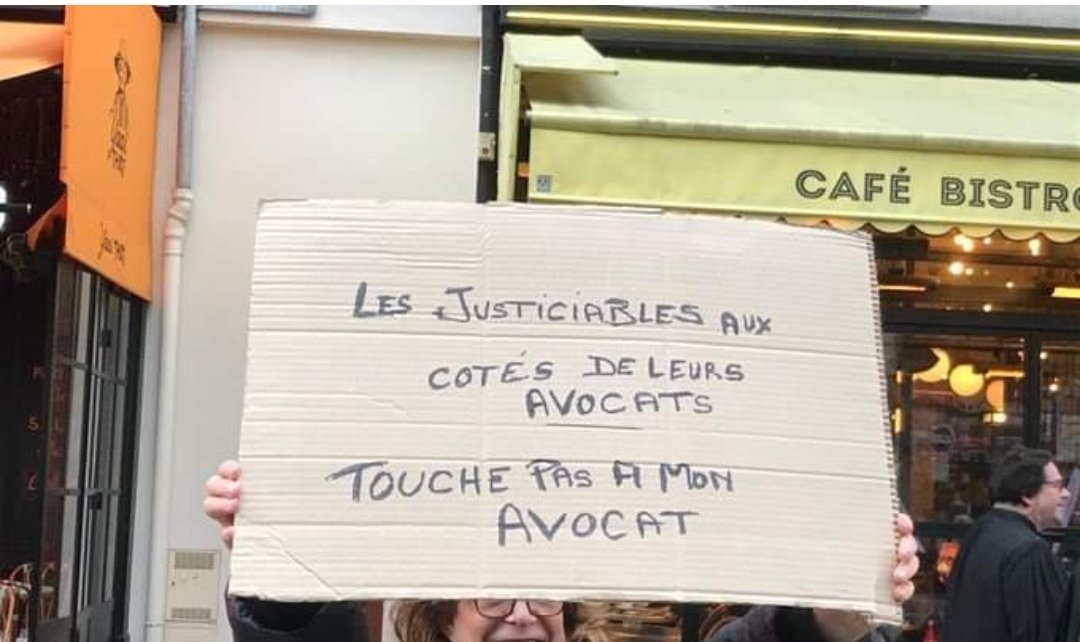 CAFÉ BISTRO
LES JUSTICIABLES AUX
COTÉS DE LEURS
AVOCATS
TOUCHE PAS A MON
AVOCAT